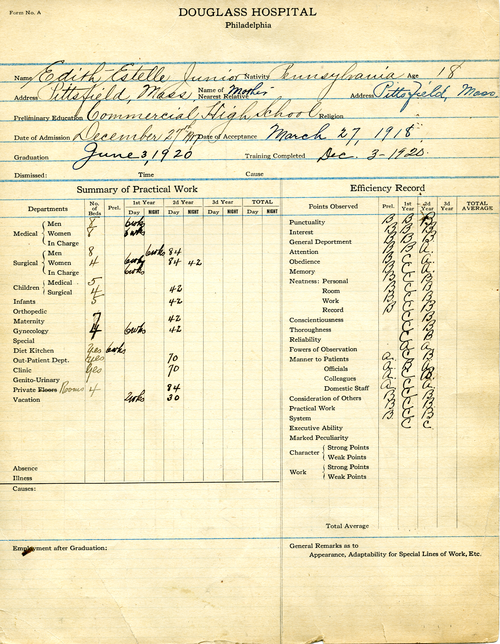 Form No. A
DOUGLASS HOSPITAL
Philadelphia
Name Edith Estelle Junior Nativity Pennsylvania Age 18
Address Pittsfield, Mass. Name of Nearest Relative Mother Address Pittsfield, Mass
Preliminary Education Commercial High School Religion
Date of Admission December 27 Date of Acceptance March 27, 1918
Graduation June 3, 1920 Training Completed Dec. 3-1920
Dismissed: Time Cause
Summary of Practical Work
Departments No. of Beds Prel. 1st Year 2d Year 3d Year TOTAL
Day NIGHT Day NIGHT Day NIGHT Day NIGHT
Medical Men 8 6wks
Women 8 6wks
In Charge
Surgical Men 8 6wks 84
Women 4 6wks 84 42
In Charge 6wks
Children Medical 5
Surgical 4 42
Infants 5 42
Orthopedic
Maternity 7 42
Gynecology 4 6wks 42
Special
Diet Kitchen yes 6wks
Out-Patient Dept. yes 70
Clinic yes 70
Genito-Urinary
Private Floors Rooms 4 84
Vacation 2wks 30
Absence
Illness
Causes:
Employment after Graduation:
Efficiency Record
Points Observed Prel. 1st Year 2d Year 3d Year TOTAL AVERAGE
Punctuality B B B
Interest B B B
General Department B B B
Attention B B A
Obedience B C A
Memory B C A
Neatness: Personal B B B
Room B C B
Work B C B
Record B C B
Conscientiousness C B
Thoroughness C B
Reliability C B
Powers of Observation C A
Manner to Patients A C B
Officials A B A
Colleagues A C B
Domestic Staff A C A
Consideration of Others B C B
Practical Work B C B
System B C B
Executive Ability C C
Marked Peculiarity
Character Strong Points
Weak Points
Work Strong Points
Weak Points
Total Average
General Remarks as to
Appearance, Adaptability for Special Lines of Work, Etc.